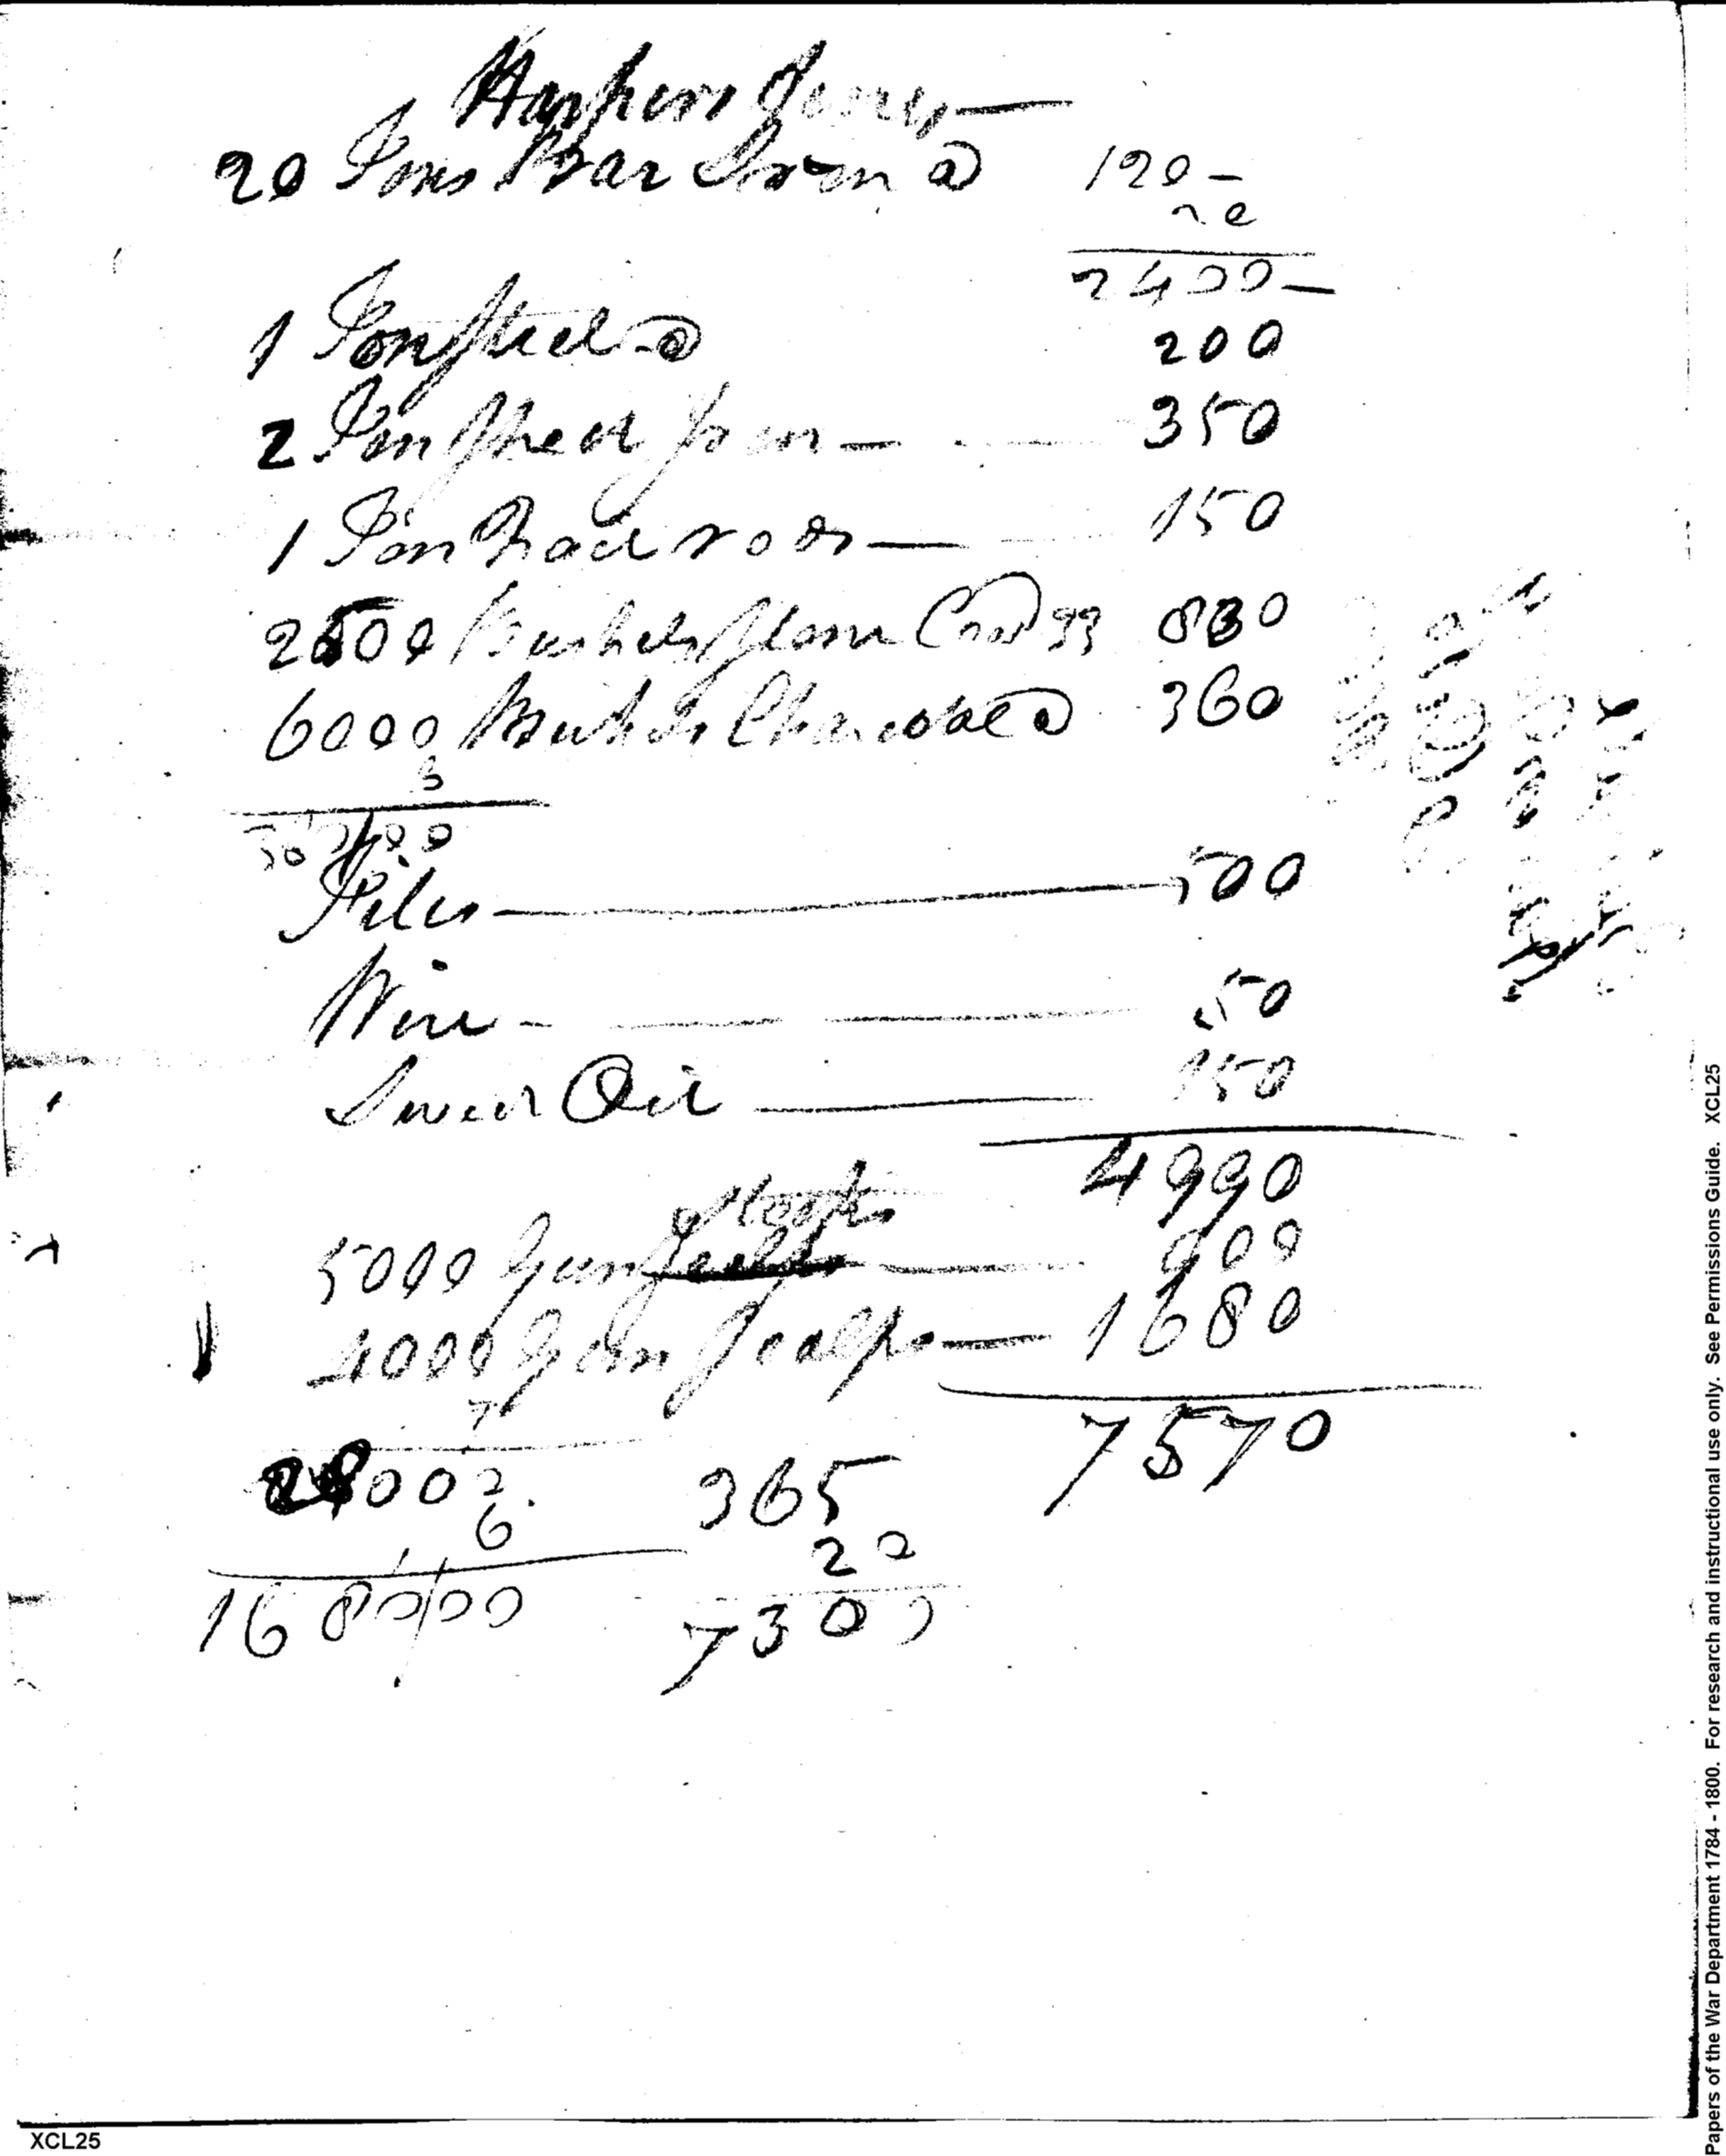 Harpers Ferry —
20 Tons Bar Iron @ 120 —
20
2400 —
1 Ton Steel @ 200
2 Ton Sheet Iron — 350
1 Ton Nail rods — 150
2500 Bushels Stone Coal @ 33 830
6000 Bushels Charcoal @ 360
Files — 500
Wire — 50
Sweet Oil — 150
4990
Stocks
5000 Gun — 900
4000 Gun Scalps — 1680
7
7570
28000 365
6 20
168000 7300
XCL25
Papers of the War Department 1784 - 1800. For research and instructional use only. See Permissions Guide. XCL25